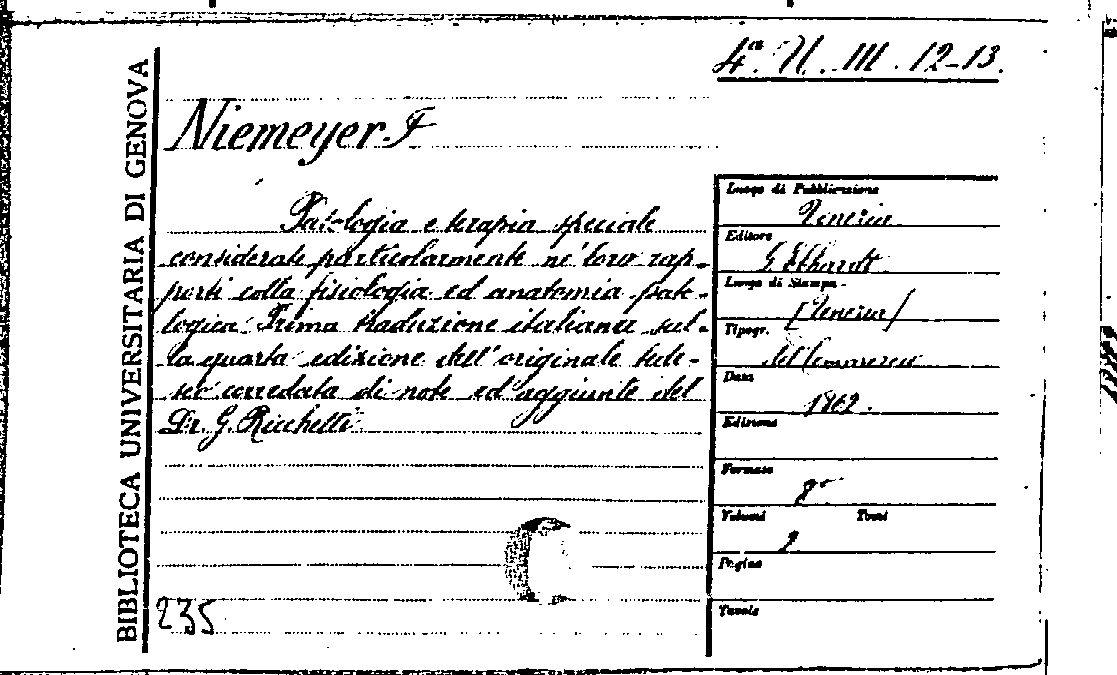 4ª. N. III. 12-13.
BIBLIOTECA UNIVERSITARIA DI GENOVA
Niemeyer F
Patologia e terapia speciale
considerate particolarmente ne' loro rap-
porti colla fisiologia ed anatomia pato-
logica. Prima traduzione italiana sul-
la quarta edizione dell'originale tede-
sco corredata di note ed aggiunte del
Dr. G. Ricchetti
235
Luogo di Pubblicazione
Venezia
Editore
G Ebhardt
Luogo di Stampa
[Venezia]
Tipogr.
del Commercio
Data
Edizione
Formato
8º
Volumi Tomi
2
Pagine
Tavole